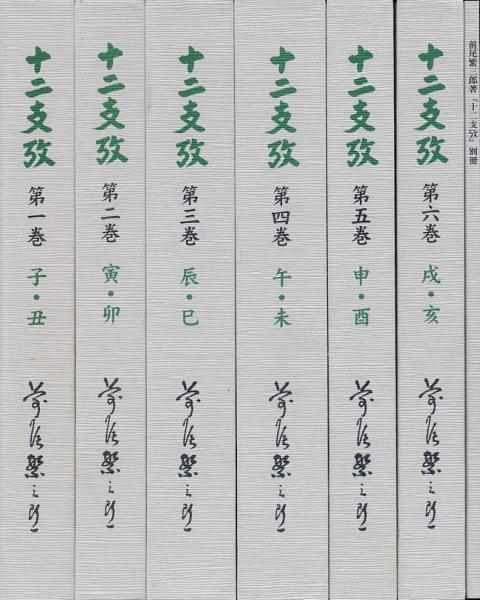 十二支攷
第一巻
子・丑
前尾繁三郎
十二支攷
第二巻
寅・卯
前尾繁三郎
十二支攷
第三巻
辰・巳
前尾繁三郎
十二支攷
第四巻
午・未
前尾繁三郎
十二支攷
第五巻
申・酉
前尾繁三郎
十二支攷
第六巻
戌・亥
前尾繁三郎
前尾繁三郎著『十二支攷』別冊